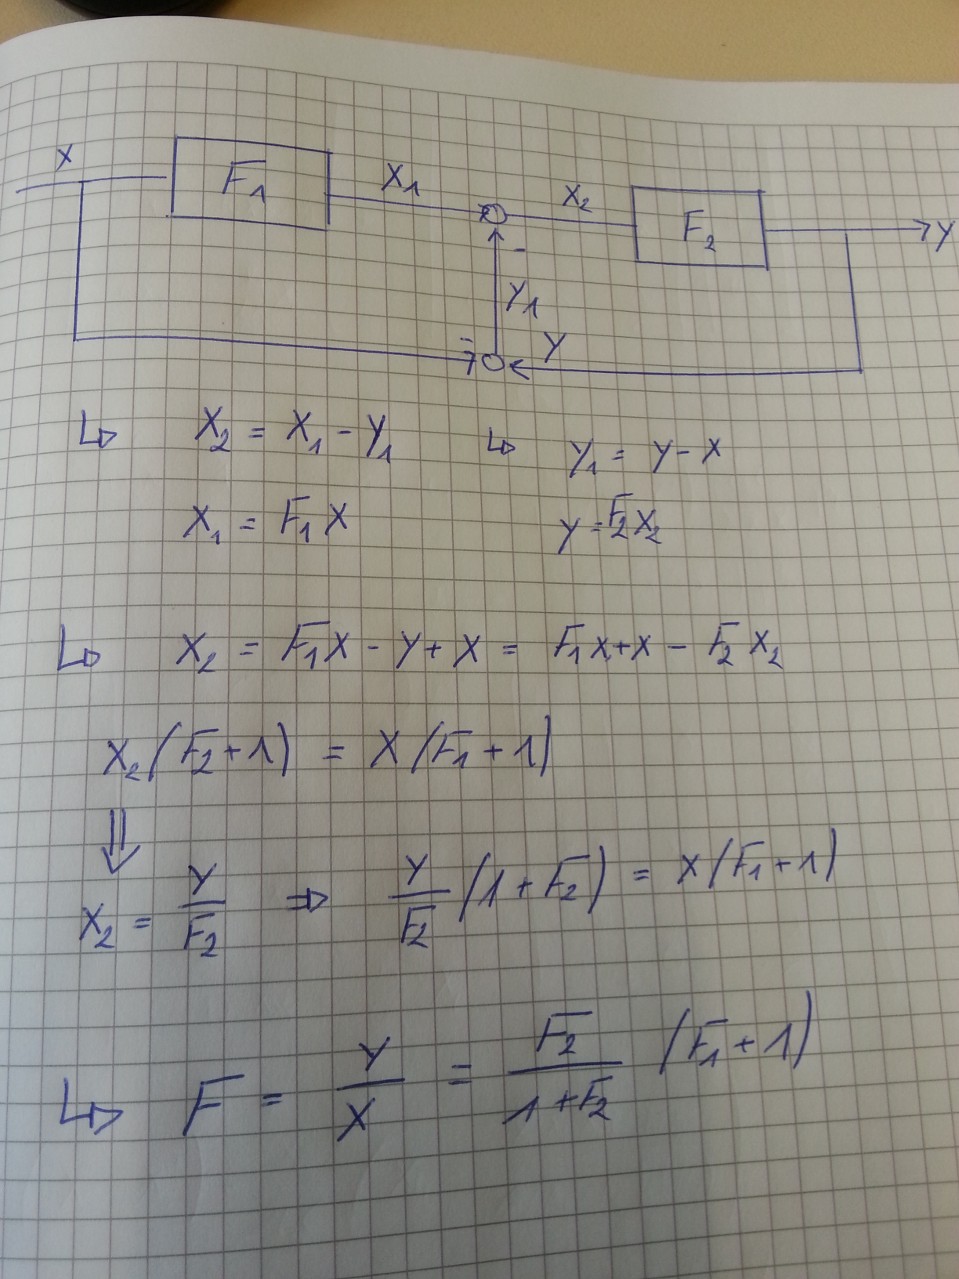 X F₁ X₁ X₂ F₂ Y
-
Y₁
- Y
↳ X₂ = X₁ - Y₁ ↳ Y₁ = Y - X
X₁ = F₁ X Y = F₂ X₂
↳ X₂ = F₁X - Y + X = F₁X + X - F₂ X₂
X₂ (F₂ + 1) = X (F₁ + 1)
⇓
X₂ = Y/F₂ ⇒ Y/F₂ (1 + F₂) = X (F₁ + 1)
↳ F = Y/X = F₂/(1 + F₂) (F₁ + 1)